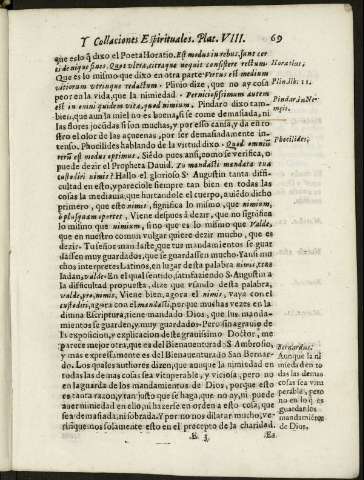 Y Collaciones Espirituales. Plat. VIII. 69
que es lo q̃ dixo el Poeta Horatio. Est modus in rebus, sunt cer
ti denique fines. Quos vltra, citraque nequit consistere rectum.
Horatius.
Que es lo mismo que dixo en otra parte Virtus est medium
vitiorum vtrinque redactum. Plinio dize, que no ay cosa
Plin. lib. 11.
peor en la vida, que la nimiedad. Perniciosissimum autem
est in omni quidem vita, quod nimium. Pindaro dixo tam-
Pindar. in Ne-
bien, que aun la miel no es buena, si se come demasiada, ni
las flores jocũdas si son muchas, y por esso cansa, y da en ro
stro el olor de las açucenas, por ser demasiadamente in-
tenso. Phocilides hablando de la virtud dixo. Quod omniũ
Phocilides.
rerũ est modus optimus. Siẽdo pues ansi, como se verifica, o
puede dezir el Propheta Dauid. Tu mandasti mandata tua
custodiri nimis? Hallo el glorioso S. Augustin tanta diffi-
cultad en esto, y pareciole siempre tan bien en todas las
cosas la mediania; que hurtandole el cuerpo, auiẽdo dicho
primero, que este nimis, significa lo mismo, que nimium,
o plusquam oportet, Viene despues à dezir, que no significa
lo mismo que nimium, sino que es lo mismo que Valde,
que en nuestro comun vulgar quiere dezir mucho, que es
dezir. Tu señor mandaste, que tus mandamientos se guar
dassen muy guardados, que se guardassen mucho. Y ansi mu
chos interpretes Latinos, en lugar desta palabra nimis, tras
ladan, valde. En el qual sentido, satisfaziendo S. Augustin a
la difficultad propuesta, dize que vsando desta palabra,
valde, pro, nimis, Viene bien, agora el nimis, vaya con el
custodiri, agora con el mandasti, porque muchas vezes en la
diuina Escriptura, tiene mandado Dios, que sus manda-
mientos se guarden, y muy guardados. Pero sin agrauio de
la exposicion, y explicacion deste grauissimo Doctor, me
parece mejor otra, que es del Bienauenturado S. Ambrosio,
y mas expressamente es del Bienauenturado San Bernar-
Bernardus.
do. Los quales authores dizen, que aunque la nimiedad en
Aunque la ni
todas las demas cosas sea vituperable, y viciosa, pero no
miedad en to
en la guarda de los mandamientos de Dios, porque esto
das las demas
es tanta razon, y tan justo que se haga, que no ay, ni puede
cosas sea vitu
auer nimiedad en ello, ni hazerse en orden a esto cosa, que
perable, pero
sea demasiada, ni sobrada. Y por no nos dilatar mucho, ve-
no en lo q̃ es
guardar los
risique nos solamente esto en el precepto de la charidad.
mandamiẽtos
de Dios.
E 3 Ea